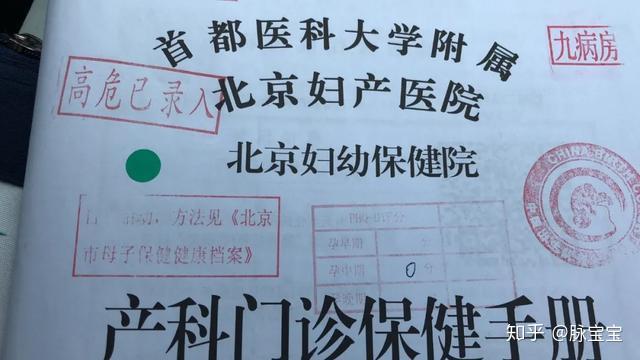 首都医科大学附属
九病房
高危已录入
北京妇产医院
北京妇幼保健院
CHINA
方法见《北京
市母子保健健康档案》
孕早期 分
孕中期 0 分
孕晚期
产科门诊保健手册
知乎 @脉宝宝